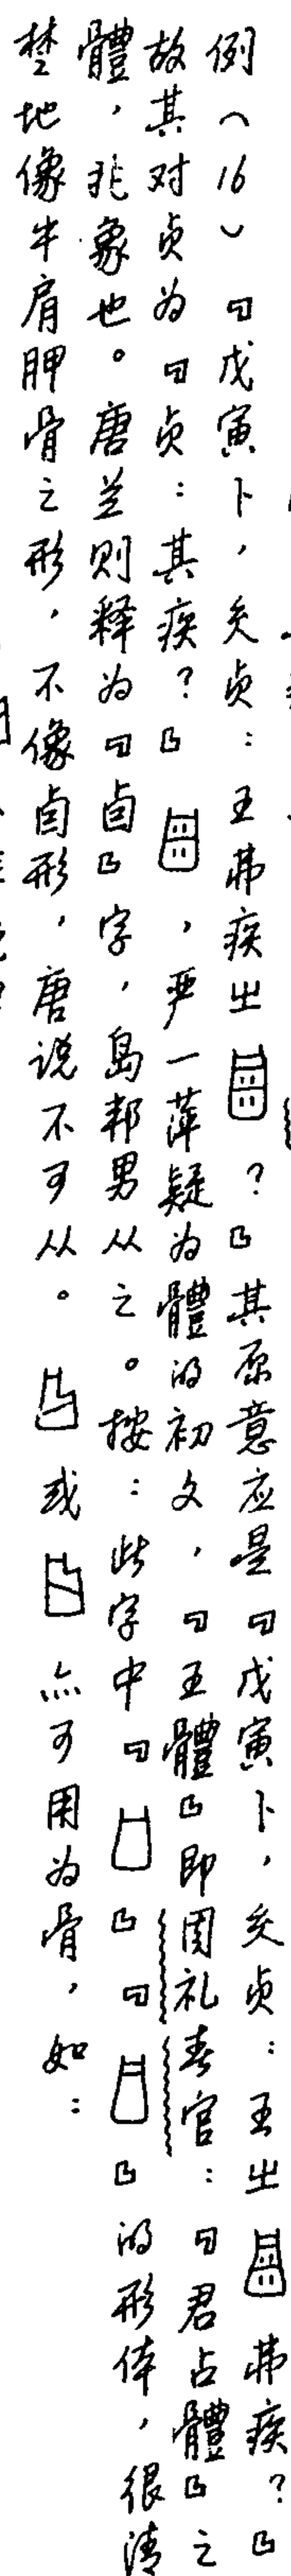 例（16）「戊寅卜，𠬝贞：王弗疾㞢？」其原意应是「戊寅卜，𠬝贞：王㞢弗疾？」
故其对贞为「贞：其疾？」，严一萍疑为體的初文，「王體」即周礼春官：「君占體」之
體，兆象也。唐兰则释为「卤」字，岛邦男从之。按：此字中「」「」的形体，很清
楚地像牛肩胛骨之形，不像卤形，唐说不可从。或亦可用为骨，如：